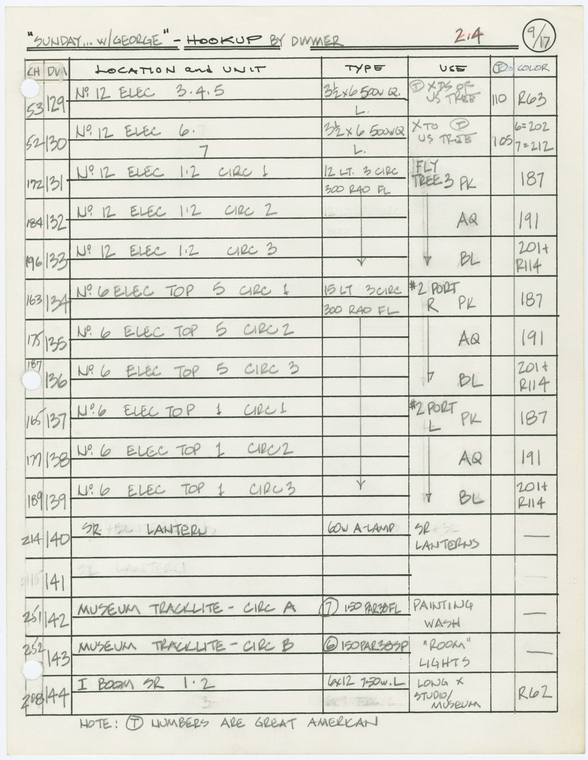 "SUNDAY... W/GEORGE" - HOOKUP BY DIMMER 2.4 9/17
CH DIM LOCATION and UNIT TYPE USE Ⓣ COLOR
53 129 Nº 12 ELEC 3.4.5 3½x6 500W Q. Ⓣ XTO'S OF 110 R63
L. US TREE
52 130 Nº 12 ELEC 6. 3½x6 500WQ X TO Ⓣ 105 6=202
7 L. US TREE 7=212
172 131 Nº 12 ELEC 1·2 CIRC 1 12 LT. 3 CIRC FLY 187
300 R40 FL TREE 3 PK
184 132 Nº 12 ELEC 1·2 CIRC 2 AQ 191
196 133 Nº 12 ELEC 1·2 CIRC 3 BL 201+
R114
163 134 Nº 6 ELEC TOP 5 CIRC 1 15 LT 3CIRC #2 PORT 187
300 R40 FL R PK
175 135 Nº 6 ELEC TOP 5 CIRC 2 AQ 191
187 136 Nº 6 ELEC TOP 5 CIRC 3 BL 201+
R114
165 137 Nº 6 ELEC TOP 1 CIRC 1 #2 PORT 187
L PK
177 138 Nº 6 ELEC TOP 1 CIRC 2 AQ 191
189 139 Nº 6 ELEC TOP 1 CIRC 3 BL 201+
R114
214 140 SR LANTERN 60W A-LAMP SR —
LANTERNS
141
251 142 MUSEUM TRACKLITE - CIRC A ⑦ 150PAR38FL PAINTING —
WASH
252 143 MUSEUM TRACKLITE - CIRC B ⑥ 150PAR38SP "ROOM" —
LIGHTS
144 I BOOM SR 1·2 6x12 750W.L LONG X R62
3 STUDIO/
MUSEUM
NOTE: Ⓣ NUMBERS ARE GREAT AMERICAN